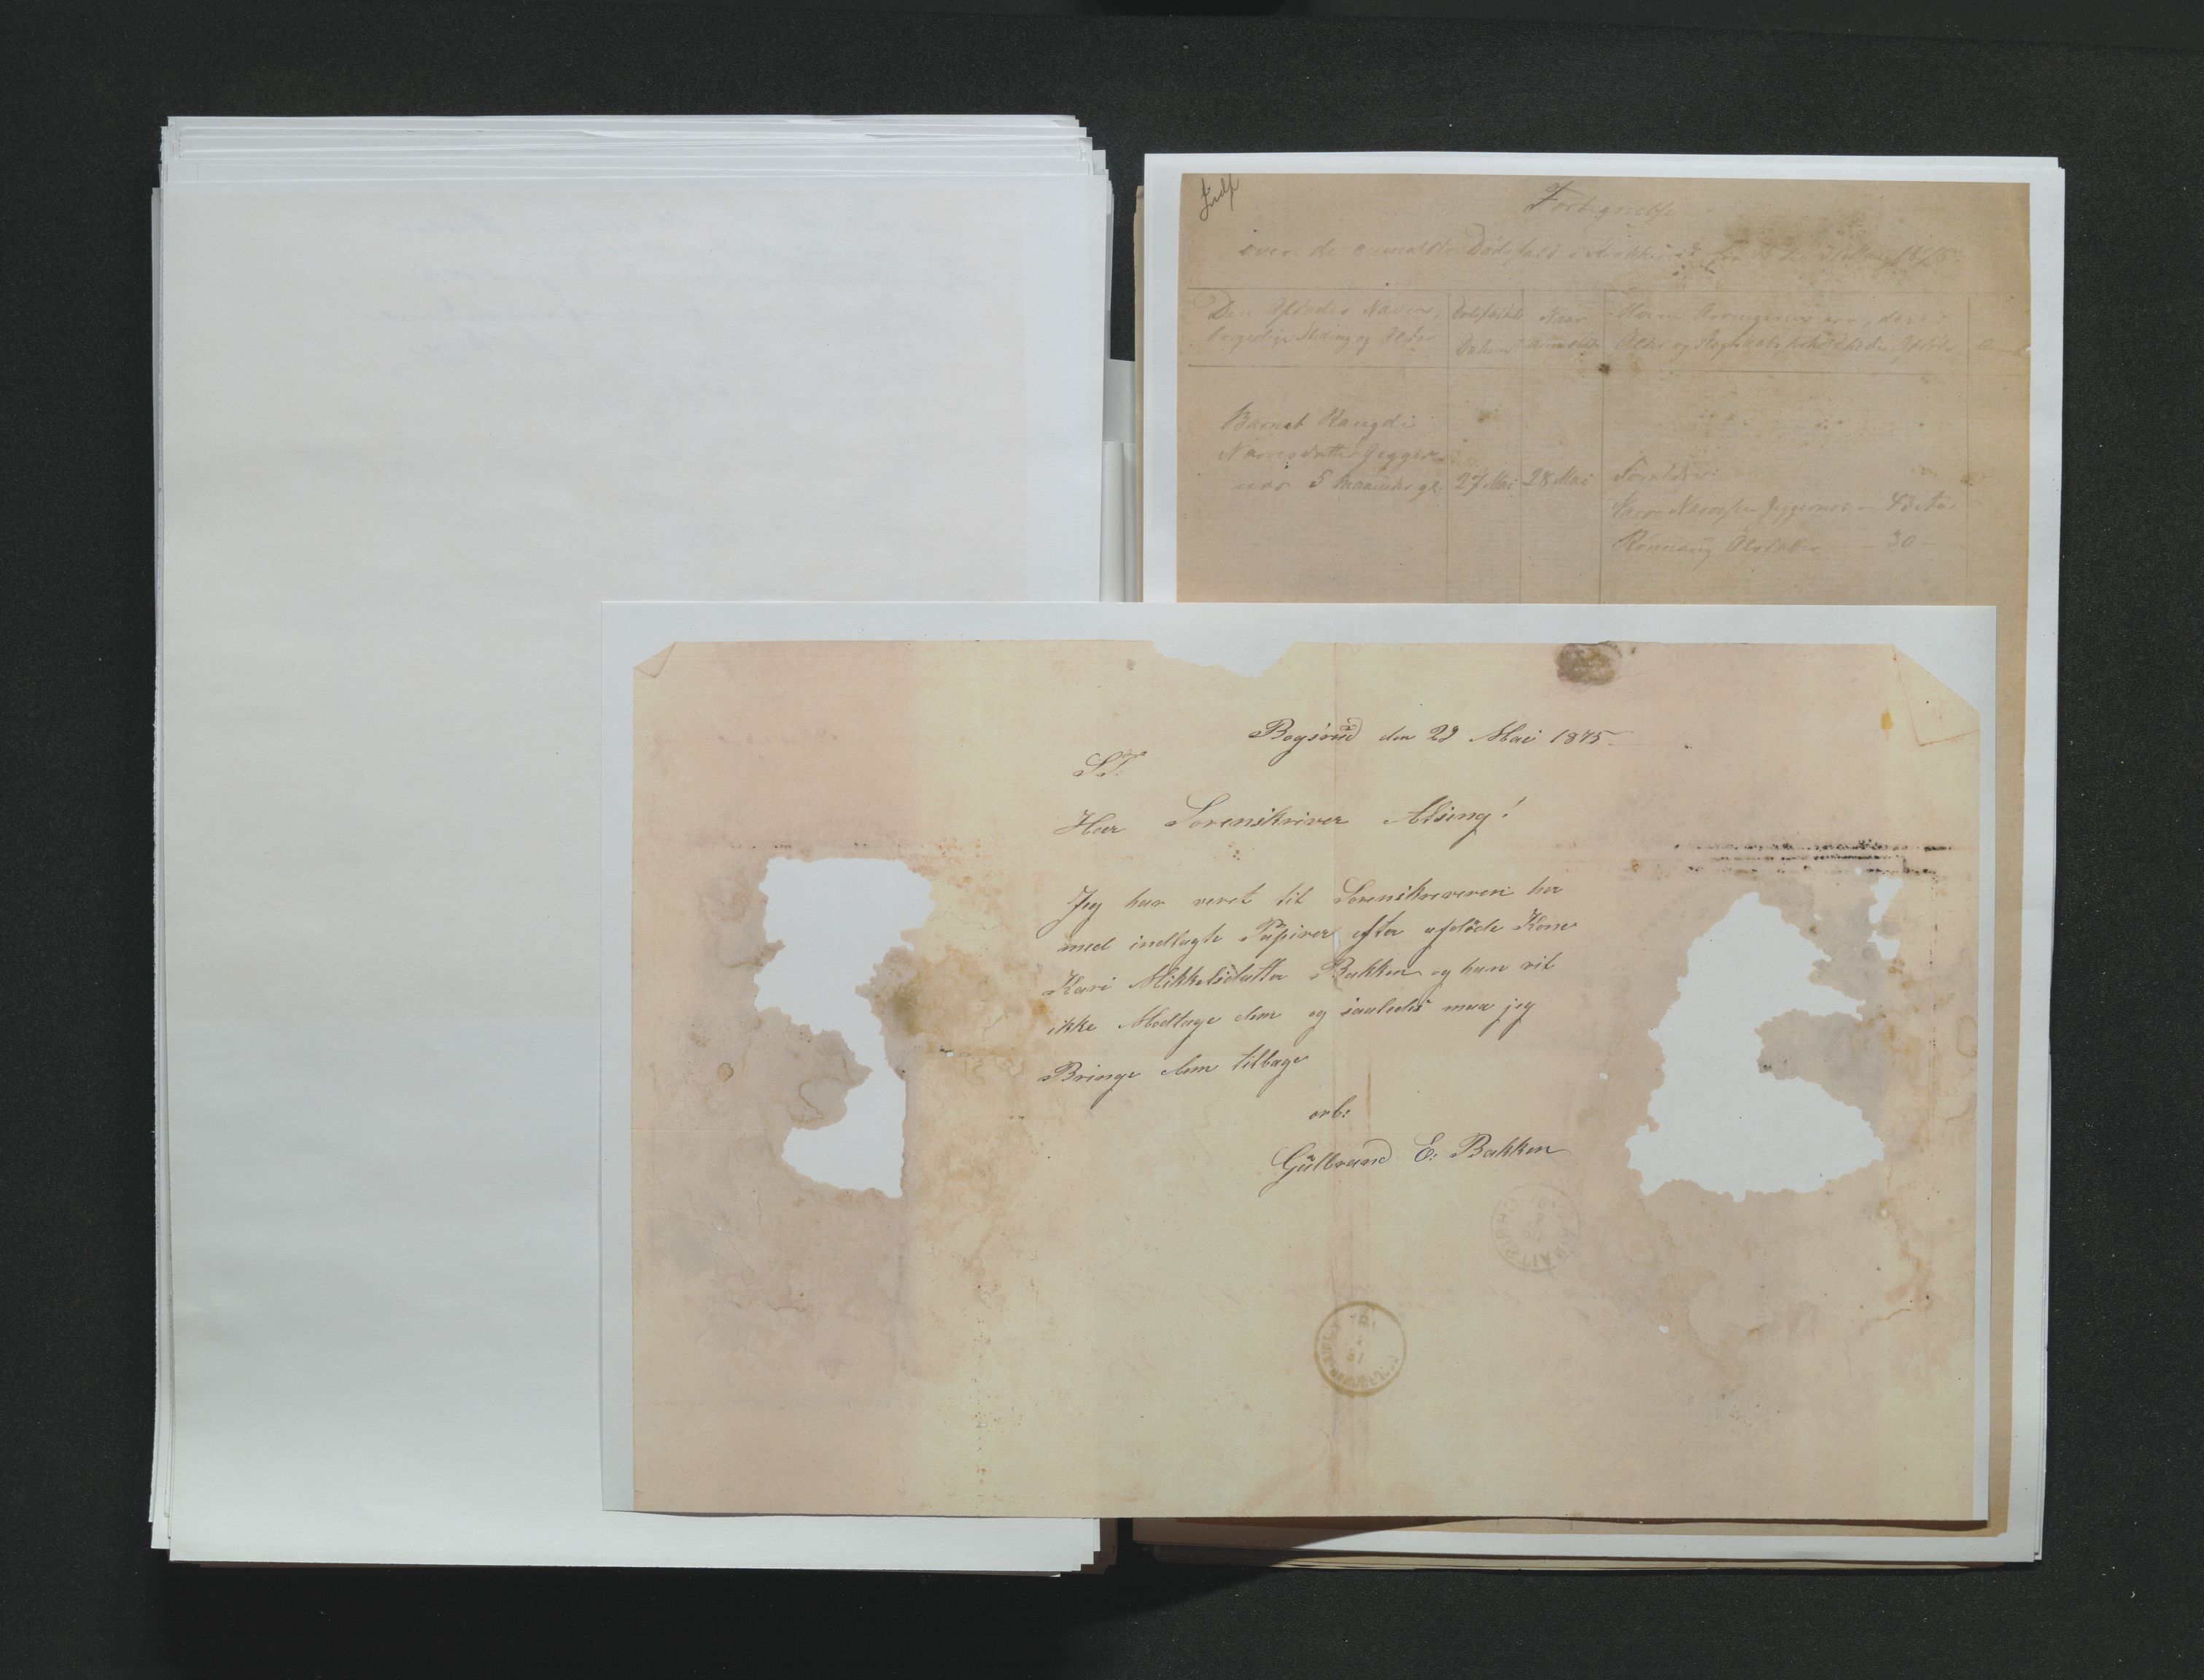 Indf
Fortegnelse
over de anmeldte Dødsfald i
Den Afdødes Navn, Dødsfaldets Naar Hvem Arvingerne ere, deres
borgerlige Stilling og Alder Datum anmeldt Alder og Slægtskabsforhold til den Afdøde
Barnet Rangdi
Narvesdatter
5 Maaneder gl. 27 Mai 28 Mai Forældre:
43 Aar
Rønnaug Olsdatter — 30 —
Bøgsrud den 29 Mai 1875
S.T.
Herr Sorenskriver Alsing!
Jeg har veret til Sorenskriveren her
med indlagte Papirer efter afdöde Kone
Kari Mikkelsdatter Bakken og han vil
ikke Modtage dem og saaledes maa jeg
Bringe dem tilbage
erb:
Gulbrand E: Bakken